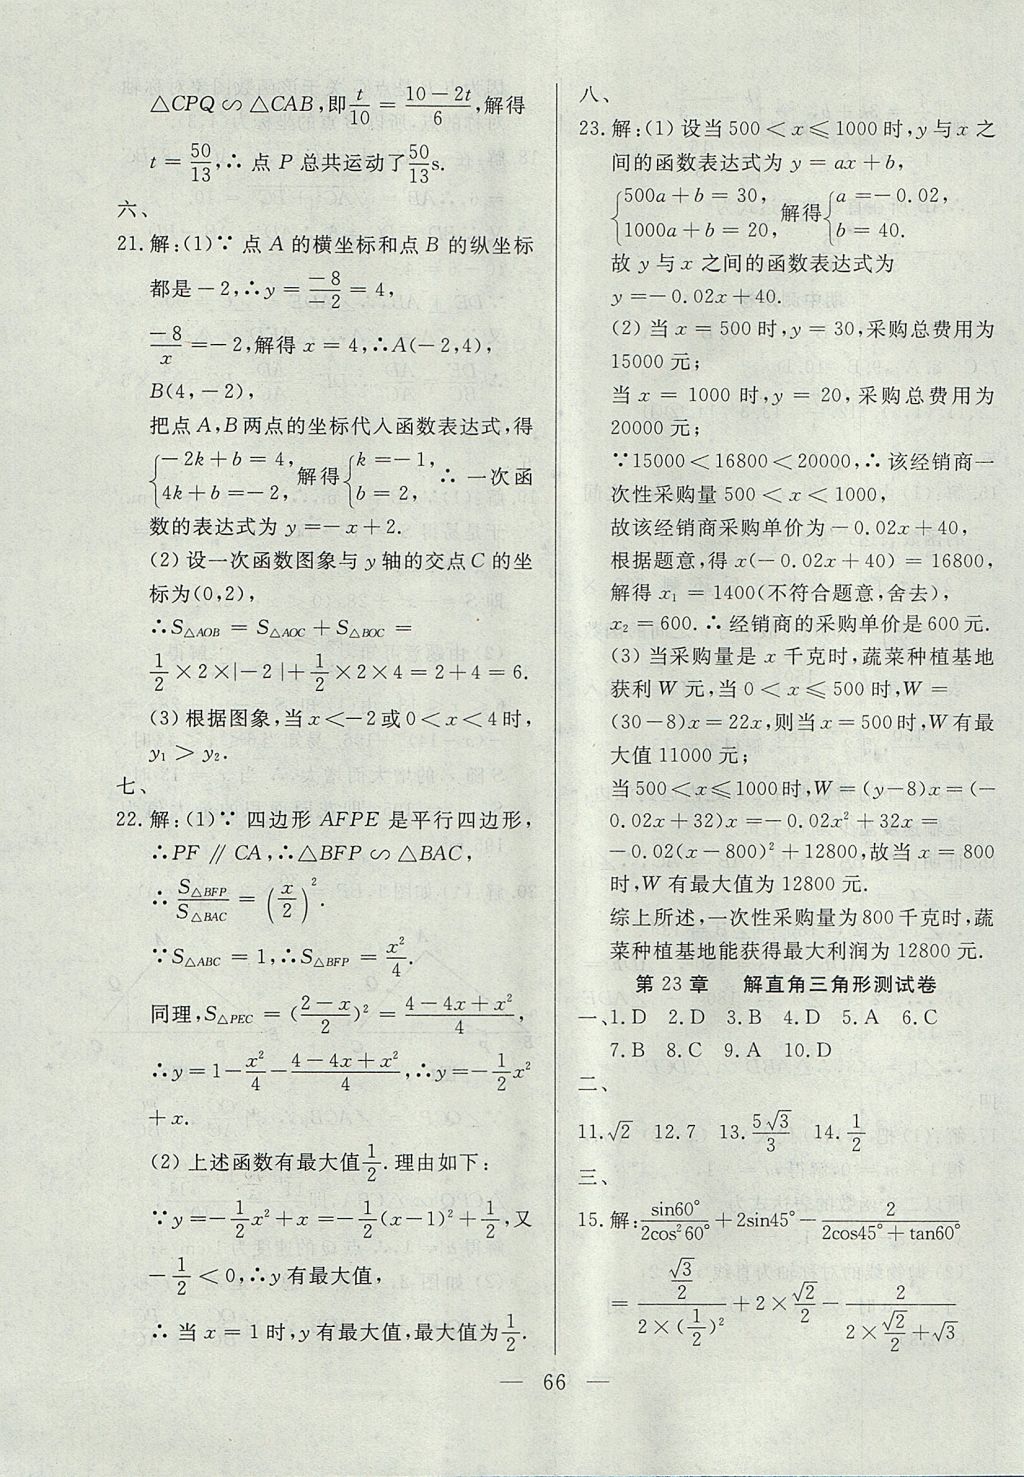 △CPQ∽△CAB,即t/10=(10-2t)/6,解得
t=50/13,∴点 P 总共运动了50/13s.
六、
21.解:(1)∵点 A 的横坐标和点 B 的纵坐标
都是-2,∴y=-8/-2=4,
-8/x=-2,解得 x=4,∴A(-2,4),
B(4,-2),
把点 A,B 两点的坐标代入函数表达式,得
{-2k+b=4, 4k+b=-2, 解得{k=-1, b=2, ∴一次函
数的表达式为 y=-x+2.
(2)设一次函数图象与 y 轴的交点 C 的坐
标为(0,2),
∴S△AOB=S△AOC+S△BOC=
1/2×2×|-2|+1/2×2×4=2+4=6.
(3)根据图象,当 x<-2或0<x<4时,
y₁>y₂.
七、
22.解:(1)∵四边形 AFPE 是平行四边形,
∴PF∥CA,∴△BFP∽△BAC,
∴S△BFP/S△BAC=(x/2)².
∵S△ABC=1,∴S△BFP=x²/4.
同理,S△PEC=((2-x)/2)²=(4-4x+x²)/4,
∴y=1-x²/4-(4-4x+x²)/4,∴y=-1/2x²
+x.
(2)上述函数有最大值1/2.理由如下:
∵y=-1/2x²+x=-1/2(x-1)²+1/2,又
-1/2<0,∴y有最大值,
∴当 x=1时,y有最大值,最大值为1/2.
八、
23.解:(1)设当500<x≤1000时,y与x之
间的函数表达式为 y=ax+b,
{500a+b=30, 1000a+b=20, 解得{a=-0.02, b=40.
故 y 与 x 之间的函数表达式为
y=-0.02x+40.
(2)当 x=500时,y=30,采购总费用为
15000元;
当 x=1000时,y=20,采购总费用为
20000元;
∵15000<16800<20000,∴该经销商一
次性采购量500<x<1000,
故该经销商采购单价为-0.02x+40,
根据题意,得 x(-0.02x+40)=16800,
解得 x₁=1400(不符合题意,舍去),
x₂=600.∴经销商的采购单价是600元.
(3)当采购量是 x 千克时,蔬菜种植基地
获利 W 元,当 0<x≤500 时,W=
(30-8)x=22x,则当x=500时,W有最
大值11000元;
当500<x≤1000时,W=(y-8)x=(-
0.02x+32)x=-0.02x²+32x=
-0.02(x-800)²+12800,故当 x=800
时,W 有最大值为12800元.
综上所述,一次性采购量为800千克时,蔬
菜种植基地能获得最大利润为12800元.
第 23 章 解直角三角形测试卷
一、1.D 2.D 3.B 4.D 5.A 6.C
7.B 8.C 9.A 10.D
二、
11.√2 12.7 13.5√3/3 14.1/2
三、
15.解:sin60°/2cos²60°+2sin45°-2/(2cos45°+tan60°)
=(√3/2)/(2×(1/2)²)+2×√2/2-2/(2×√2/2+√3)
— 66 —